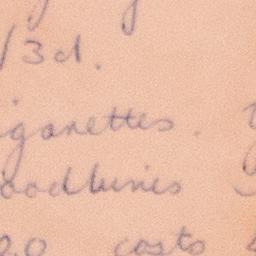 /3d.
igarettes.
oodbines
20 costs